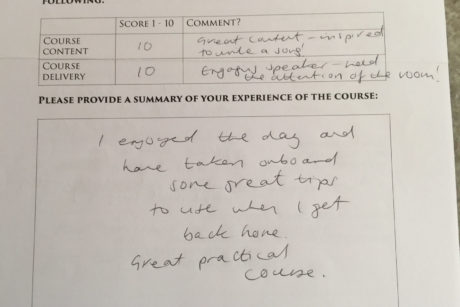 FOLLOWING:
SCORE 1 - 10 COMMENT?
COURSE CONTENT 10 Great content - inspired to write a song!
COURSE DELIVERY 10 Engaging speaker - held the attention of the room!
PLEASE PROVIDE A SUMMARY OF YOUR EXPERIENCE OF THE COURSE:
I enjoyed the day and
have taken onboard
some great tips
to use when I get
back home.
Great practical
course.